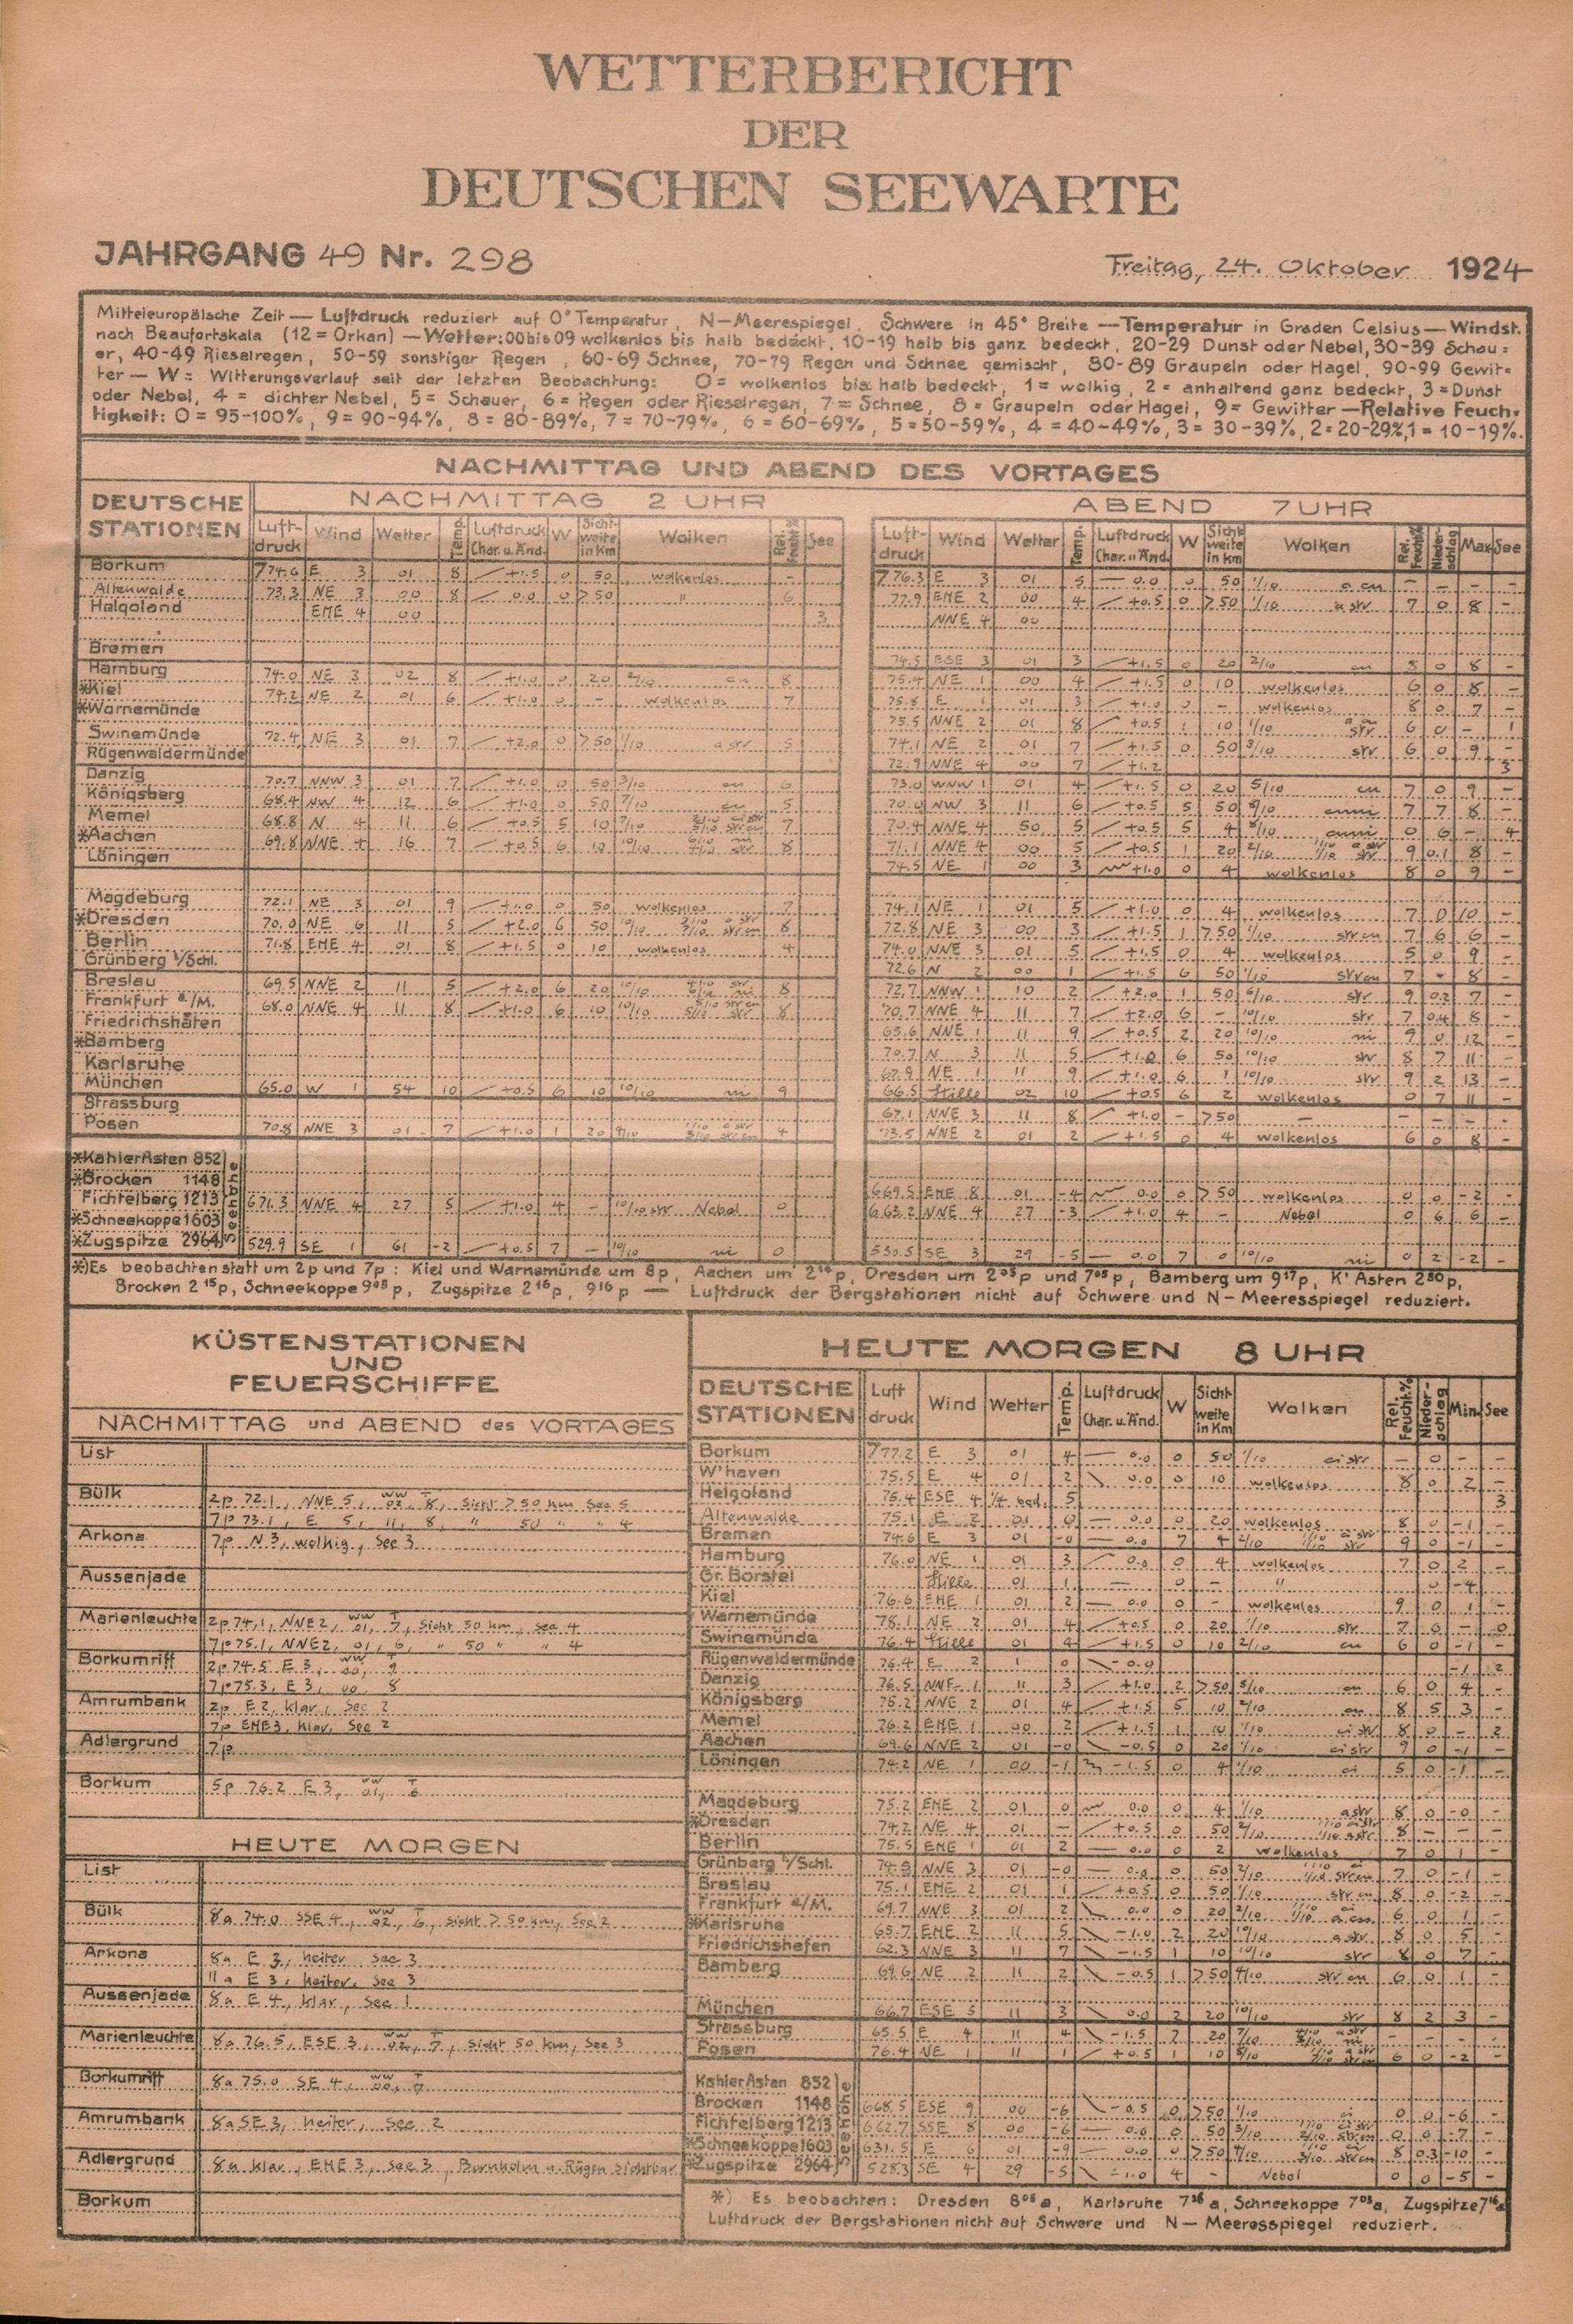 WETTERBERICHT
DER
DEUTSCHEN SEEWARTE
JAHRGANG 49 Nr. 298
Freitag, 24. Oktober 1924
Mitteleuropäische Zeit — Luftdruck reduziert auf 0° Temperatur, N—Meerespiegel, Schwere in 45° Breite — Temperatur in Graden Celsius — Windst.
nach Beaufortskala (12 = Orkan) — Wetter: 00 bis 09 wolkenlos bis halb bedeckt, 10-19 halb bis ganz bedeckt, 20-29 Dunst oder Nebel, 30-39 Schau=
er, 40-49 Rieselregen, 50-59 sonstiger Regen, 60-69 Schnee, 70-79 Regen und Schnee gemischt, 80-89 Graupeln oder Hagel, 90-99 Gewit=
ter — W = Witterungsverlauf seit der letzten Beobachtung: 0 = wolkenlos bis halb bedeckt, 1 = wolkig, 2 = anhaltend ganz bedeckt, 3 = Dunst
oder Nebel, 4 = dichter Nebel, 5 = Schauer, 6 = Regen oder Rieselregen, 7 = Schnee, 8 = Graupeln oder Hagel, 9 = Gewitter — Relative Feuch=
tigkeit: 0 = 95-100%, 9 = 90-94%, 8 = 80-89%, 7 = 70-79%, 6 = 60-69%, 5 = 50-59%, 4 = 40-49%, 3 = 30-39%, 2 = 20-29%, 1 = 10-19%.
NACHMITTAG UND ABEND DES VORTAGES
DEUTSCHE STATIONEN
NACHMITTAG 2 UHR
ABEND 7 UHR
Luftdruck Wind Wetter Temp. Luftdruck Char. u. Änd. W Sichtweite in Km Wolken Rel. Feucht.% See
Luftdruck Wind Wetter Temp. Luftdruck Char. u. Änd. W Sichtweite in Km Wolken Rel. Feucht.% Niederschlag Max See
Borkum 774.6 E 3 01 8 +1.5 0 50 wolkenlos - 776.3 E 3 01 5 0.0 0 50 1/10 a cu - - - -
Altenwalde 73.3 NE 3 00 8 0.0 0 >50 " 6 77.9 ENE 2 00 4 +0.5 0 >50 1/10 a str 7 0 8 -
Helgoland ENE 4 00 3 NNE 4 00
Bremen 74.5 ESE 3 01 3 +1.5 0 20 2/10 cu 8 0 8 -
Hamburg 74.0 NE 3 02 8 +1.0 0 20 2/10 cu 8 75.4 NE 1 00 4 +1.5 0 10 wolkenlos 6 0 8 -
*Kiel 74.2 NE 2 01 6 +1.0 0 - wolkenlos 7 75.8 E 1 01 3 +1.0 0 - wolkenlos 8 0 7 -
*Warnemünde 75.5 NNE 2 01 8 +0.5 1 10 1/10 str 6 0 - 1
Swinemünde 72.4 NE 3 01 7 +2.0 0 >50 1/10 a str 5 74.1 NE 2 01 7 +1.5 0 50 3/10 str 6 0 9 -
Rügenwaldermünde 72.9 NNE 4 00 7 +1.2 3
Danzig 70.7 NNW 3 01 7 +1.0 0 50 3/10 cu 6 73.0 WNW 1 01 4 +1.5 0 20 5/10 cu 7 0 9 -
Königsberg 68.4 NW 4 12 6 +1.0 0 50 7/10 cu 5 70.0 NW 3 11 6 +0.5 5 50 8/10 cuni 7 7 8 -
Memel 68.8 N 4 11 6 +0.5 5 10 7/10 7 70.4 NNE 4 50 5 +0.5 5 4 8/10 cuni 0 6 - 4
*Aachen 69.8 NNE 4 16 7 +0.5 6 10 10/10 8 71.1 NNE 4 00 5 +0.5 1 20 2/10 9 0.1 8 -
Löningen 74.5 NE 1 00 3 +1.0 0 4 wolkenlos 8 0 9 -
Magdeburg 72.1 NE 3 01 9 +1.0 0 50 wolkenlos 7 74.1 NE 1 01 5 +1.0 0 4 wolkenlos 7 0 10 -
*Dresden 70.0 NE 6 11 5 +2.0 6 50 8 72.8 NE 3 00 3 +1.5 1 >50 1/10 str cu 7 6 6 -
Berlin 71.8 ENE 4 01 8 +1.5 0 10 wolkenlos 4 74.0 NNE 3 01 5 +1.5 0 4 wolkenlos 5 0 9 -
Grünberg i/Schl. 72.6 N 2 00 1 +1.5 6 50 1/10 str cu 7 - 8 -
Breslau 69.5 NNE 2 11 5 +2.0 6 20 10/10 8 72.7 NNW 1 10 2 +2.0 1 50 6/10 str 9 0.2 7 -
Frankfurt a/M. 68.0 NNE 4 11 8 +1.0 6 10 10/10 8 70.7 NNE 4 11 7 +2.0 6 - 10/10 str 7 0.4 8 -
Friedrichshafen 65.6 NNE 1 11 9 +0.5 2 20 10/10 ni 9 0 12 -
*Bamberg 70.7 N 3 11 5 +1.0 6 50 10/10 str 8 7 11 -
Karlsruhe 67.9 NE 1 11 9 +1.0 6 1 10/10 str 9 2 13 -
München 65.0 W 1 54 10 +0.5 6 10 10/10 ni 9 66.5 Stille 02 10 +0.5 6 2 wolkenlos 0 7 11 -
Strassburg 67.1 NNE 3 11 8 +1.0 - >50 - - - - -
Posen 70.8 NNE 3 01 7 +1.0 1 20 4 73.5 NNE 2 01 2 +1.5 0 4 wolkenlos 6 0 8 -
Seehöhe
*Kahler Asten 852
*Brocken 1148
Fichtelberg 1213 671.3 NNE 4 27 5 +1.0 4 - 10/10 str Nebel 0
669.5 ENE 8 01 -4 0.0 0 >50 wolkenlos 0 0 -2 -
663.2 NNE 4 27 -3 +1.0 4 - Nebel 0 6 6 -
*Schneekoppe 1603
*Zugspitze 2964 529.9 SE 1 61 -2 +0.5 7 - 10/10 ni 0 530.5 SE 3 29 -5 0.0 7 0 10/10 ni 0 2 -2 -
*) Es beobachten statt um 2p und 7p: Kiel und Warnemünde um 8p, Aachen um 2¹⁶p, Dresden um 2⁰⁵p und 7⁰⁵p, Bamberg um 9¹⁷p, K' Asten 2³⁰p,
Brocken 2¹⁵p, Schneekoppe 9⁰⁸p, Zugspitze 2¹⁶p, 9¹⁶p — Luftdruck der Bergstationen nicht auf Schwere und N—Meeresspiegel reduziert.
KÜSTENSTATIONEN
UND
FEUERSCHIFFE
NACHMITTAG und ABEND des VORTAGES
List
Bülk 2p 72.1, NNE 5, ww 02, T 8, Sicht >50 km See 5
7p 73.1, E 5, 11, 8, " 50 " " 4
Arkona 7p N3, wolkig, See 3
Aussenjade
Marienleuchte 2p 74.1, NNE2, ww 01, T 7, Sicht 50 km, See 4
7p 75.1, NNE2, 01, 6, " 50 " " 4
Borkumriff 2p 74.5 E 3, ww 00, T 9
7p 75.3, E 3, 00, 8
Amrumbank 2p E 2, klar, See 2
7p ENE3, klar, See 2
Adlergrund 7p
Borkum 5p 76.2 E 3, ww 01, T 6
HEUTE MORGEN
List
Bülk 8a 74.0 SSE 4, ww 02, T 6, Sicht >50 km, See 2
Arkona 8a E 3, heiter See 3
11a E 3, heiter, See 3
Aussenjade 8a E 4, klar, See 1
Marienleuchte 8a 76.5, ESE 3, ww 02, T 7, Sicht 50 km, See 3
Borkumriff 8a 75.0 SE 4, ww 00, T 7
Amrumbank 8a SE 3, heiter, See 2
Adlergrund 8a klar, ENE 3, See 3, Bornholm u. Rügen sichtbar
Borkum
HEUTE MORGEN 8 UHR
DEUTSCHE STATIONEN Luftdruck Wind Wetter Temp. Luftdruck Char. u. Änd. W Sichtweite in Km Wolken Rel. Feucht.% Niederschlag Min. See
Borkum 777.2 E 3 01 4 0.0 0 50 1/10 ci str - 0 - -
W'haven 75.5 E 4 01 2 0.0 0 10 wolkenlos 8 0 2 -
Helgoland 75.4 ESE 4 1/4 bed. 5 3
Altenwalde 75.1 E 2 01 0 0.0 0 20 wolkenlos 8 0 -1 -
Bremen 74.6 E 3 01 -0 0.0 7 4 2/10 9 0 -1 -
Hamburg 76.0 NE 1 01 3 0.0 0 4 wolkenlos 7 0 2 -
Gr. Borstel Stille 01 1 0 - " 0 -4
Kiel 76.6 ENE 1 01 2 0.0 0 - wolkenlos 9 0 1 -
Warnemünde 78.1 NE 2 01 4 +0.5 0 20 1/10 str 7 0 - 0
Swinemünde 76.4 Stille 01 4 +1.5 0 10 2/10 cu 6 0 -1 -
Rügenwaldermünde 76.4 E 2 1 0 -0.9 -1 2
Danzig 76.5 NNE 1 11 3 +1.0 2 >50 5/10 cu 6 0 4 -
Königsberg 75.2 NNE 2 01 4 +1.5 5 10 2/10 cu 8 5 3 -
Memel 76.2 ENE 1 00 2 +1.5 1 10 1/10 ci str 8 0 - 2
Aachen 69.6 NNE 2 01 -0 -0.5 0 20 1/10 ci str 9 0 -1 -
Löningen 74.2 NE 1 00 -1 -1.5 0 4 1/10 ci 5 0 -1 -
Magdeburg 75.2 ENE 2 01 0 0.0 0 4 1/10 a str 8 0 -0 -
*Dresden 74.2 NE 4 01 - +0.5 0 50 2/10 8 - - -
Berlin 75.5 ENE 1 01 2 0.0 0 2 wolkenlos 7 0 1 -
Grünberg i/Schl. 74.5 NNE 3 01 -0 0.0 0 50 2/10 7 0 -1 -
Breslau 75.1 ENE 2 01 1 +0.5 0 50 1/10 str cu 8 0 -2 -
Frankfurt a/M. 69.7 NNE 3 01 2 0.0 0 20 2/10 6 0 1 -
*Karlsruhe 65.7 ENE 2 11 5 -1.0 2 20 10/10 a str 8 0 5 -
Friedrichshafen 62.3 NNE 3 11 7 -1.5 1 10 10/10 str 8 0 7 -
Bamberg 69.6 NE 2 11 2 -0.5 1 >50 9/10 str cu 6 0 1 -
München 66.7 ESE 5 11 3 0.0 2 20 10/10 str 8 2 3 -
Strassburg 65.5 E 4 11 4 -1.5 2 20 7/10 - - - -
Posen 76.4 NE 1 11 1 +0.5 1 10 8/10 6 0 -2 -
Seehöhe
Kahler Asten 852
Brocken 1148 668.5 ESE 9 00 -6 -0.5 0 >50 1/10 ci 0 0 -6 -
Fichtelberg 1213 662.7 SSE 8 00 -6 0.0 0 50 3/10 0 0 -7 -
*Schneekoppe 1603 631.5 E 6 01 -9 0.0 0 >50 4/10 8 0.3 -10 -
*Zugspitze 2964 528.3 SE 4 29 -5 -1.0 4 - Nebel 0 0 -5 -
*) Es beobachten: Dresden 8⁰⁵a, Karlsruhe 7²⁶a, Schneekoppe 7⁰³a, Zugspitze 7¹⁶a
Luftdruck der Bergstationen nicht auf Schwere und N—Meeresspiegel reduziert.